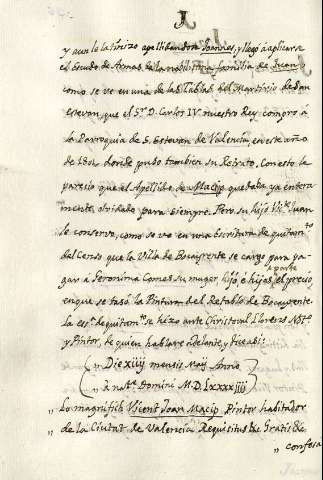 y aun le latinizo apellidandose Joannes, y llegó á aplicarse
el Escudo de Armas de la nobilisima familia de Juan
como se ve en una de las Tablas del Martirio de San
Estevan, que el S.r D. Carlos IV. nuestro Rey compró á
la Parroquia de S. Estevan de Valencia, en este año
de 1801, donde puso tambien su Retrato. Con esto la
parecio que el Apellido de Macip quedaba ya entera
mente olvidado para siempre. Pero su hijo Vic.te Juan
le conserva, como se ve en una Escritura de quitam.to
del Censo que la Villa de Bocayrente se cargo para pa-
gar á Geronima Comes su muger, hijo é hijas, el precio
á parte
en que se tasó la Pintura del Retablo de Bocayrente.
La es.ra de quitam.to se hizo ante Christoval Llorens Not.o
y Pintor, de quien hablare adelante, y dice asi:
„ Die xiiij mensis Maij Anno
„ á nat.e Domini M.D.Lxxxx iiij
„ Lo magnifich Vicent Joan Macip Pintor habitador
„ de la Ciutat de Valencia Requisitus &c Gratis &c
„ confesa